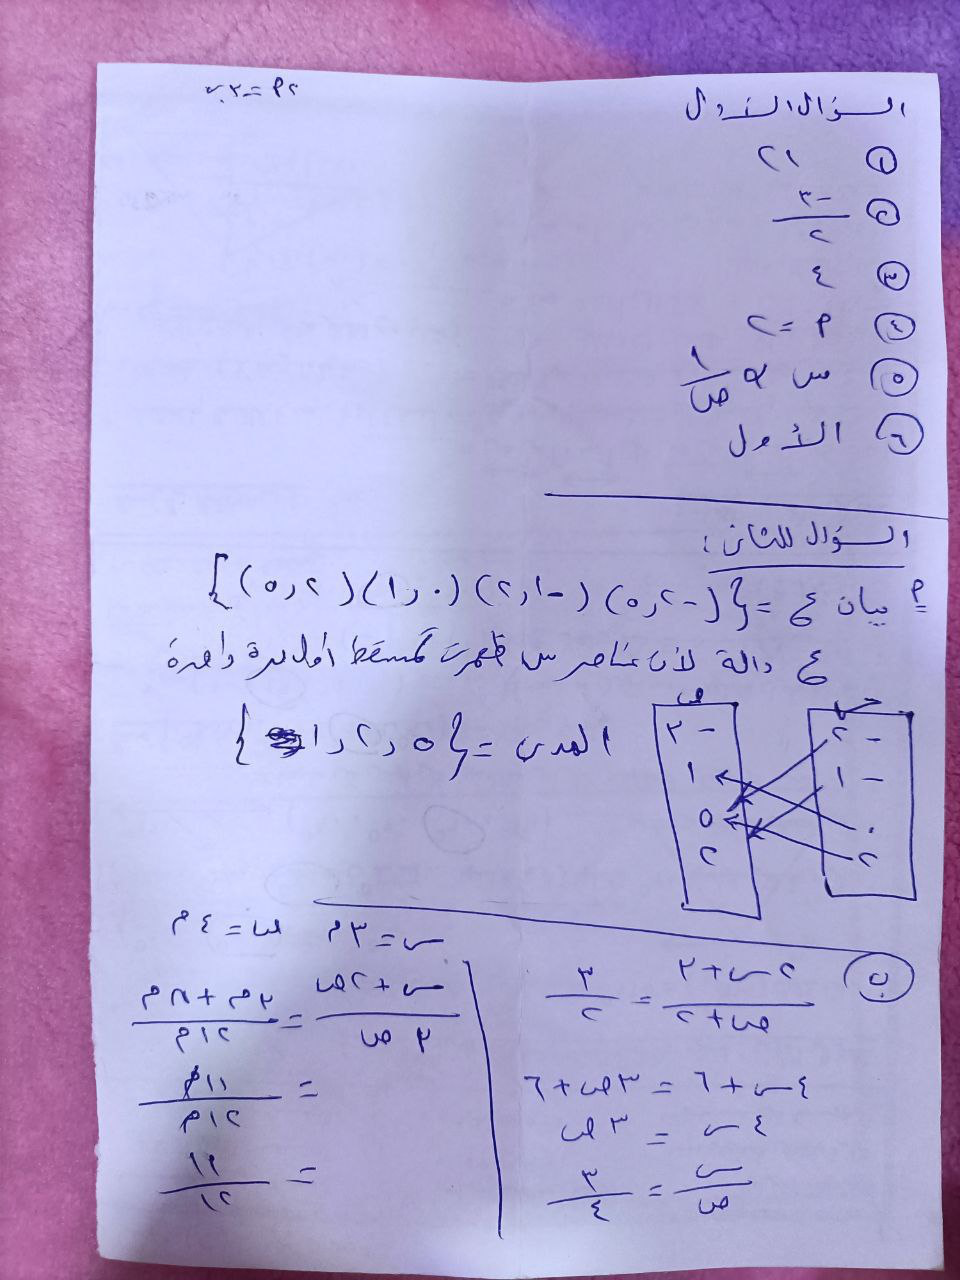 ٢م = ٢ب
السؤال الأول
① ٢١
② -٣/٢
③ ٤
④ م = ٢
⑤ س α ١/ص
⑥ الأول
السؤال الثانى :
م بيان ع = {(-٢,٥) (-١,٢) (٠,١) (٢,٥)}
ع دالة لأن عناصر س ظهرت كمسقط أول مرة واحدة
س ص
-٢ -٣
-١ ١
٠ ٥
٢ ٢
المدى = {٥,٢,١}
ب
(٢س+٣)/(ص+٢) = ٣/٢
٤س+٦ = ٣ص+٦
٤س = ٣ص
س/ص = ٣/٤
س = ٣م ص = ٤م
(س+٢ص)/(٣ص) = (٣م+٨م)/(١٢م)
= ١١م/١٢م
= ١١/١٢